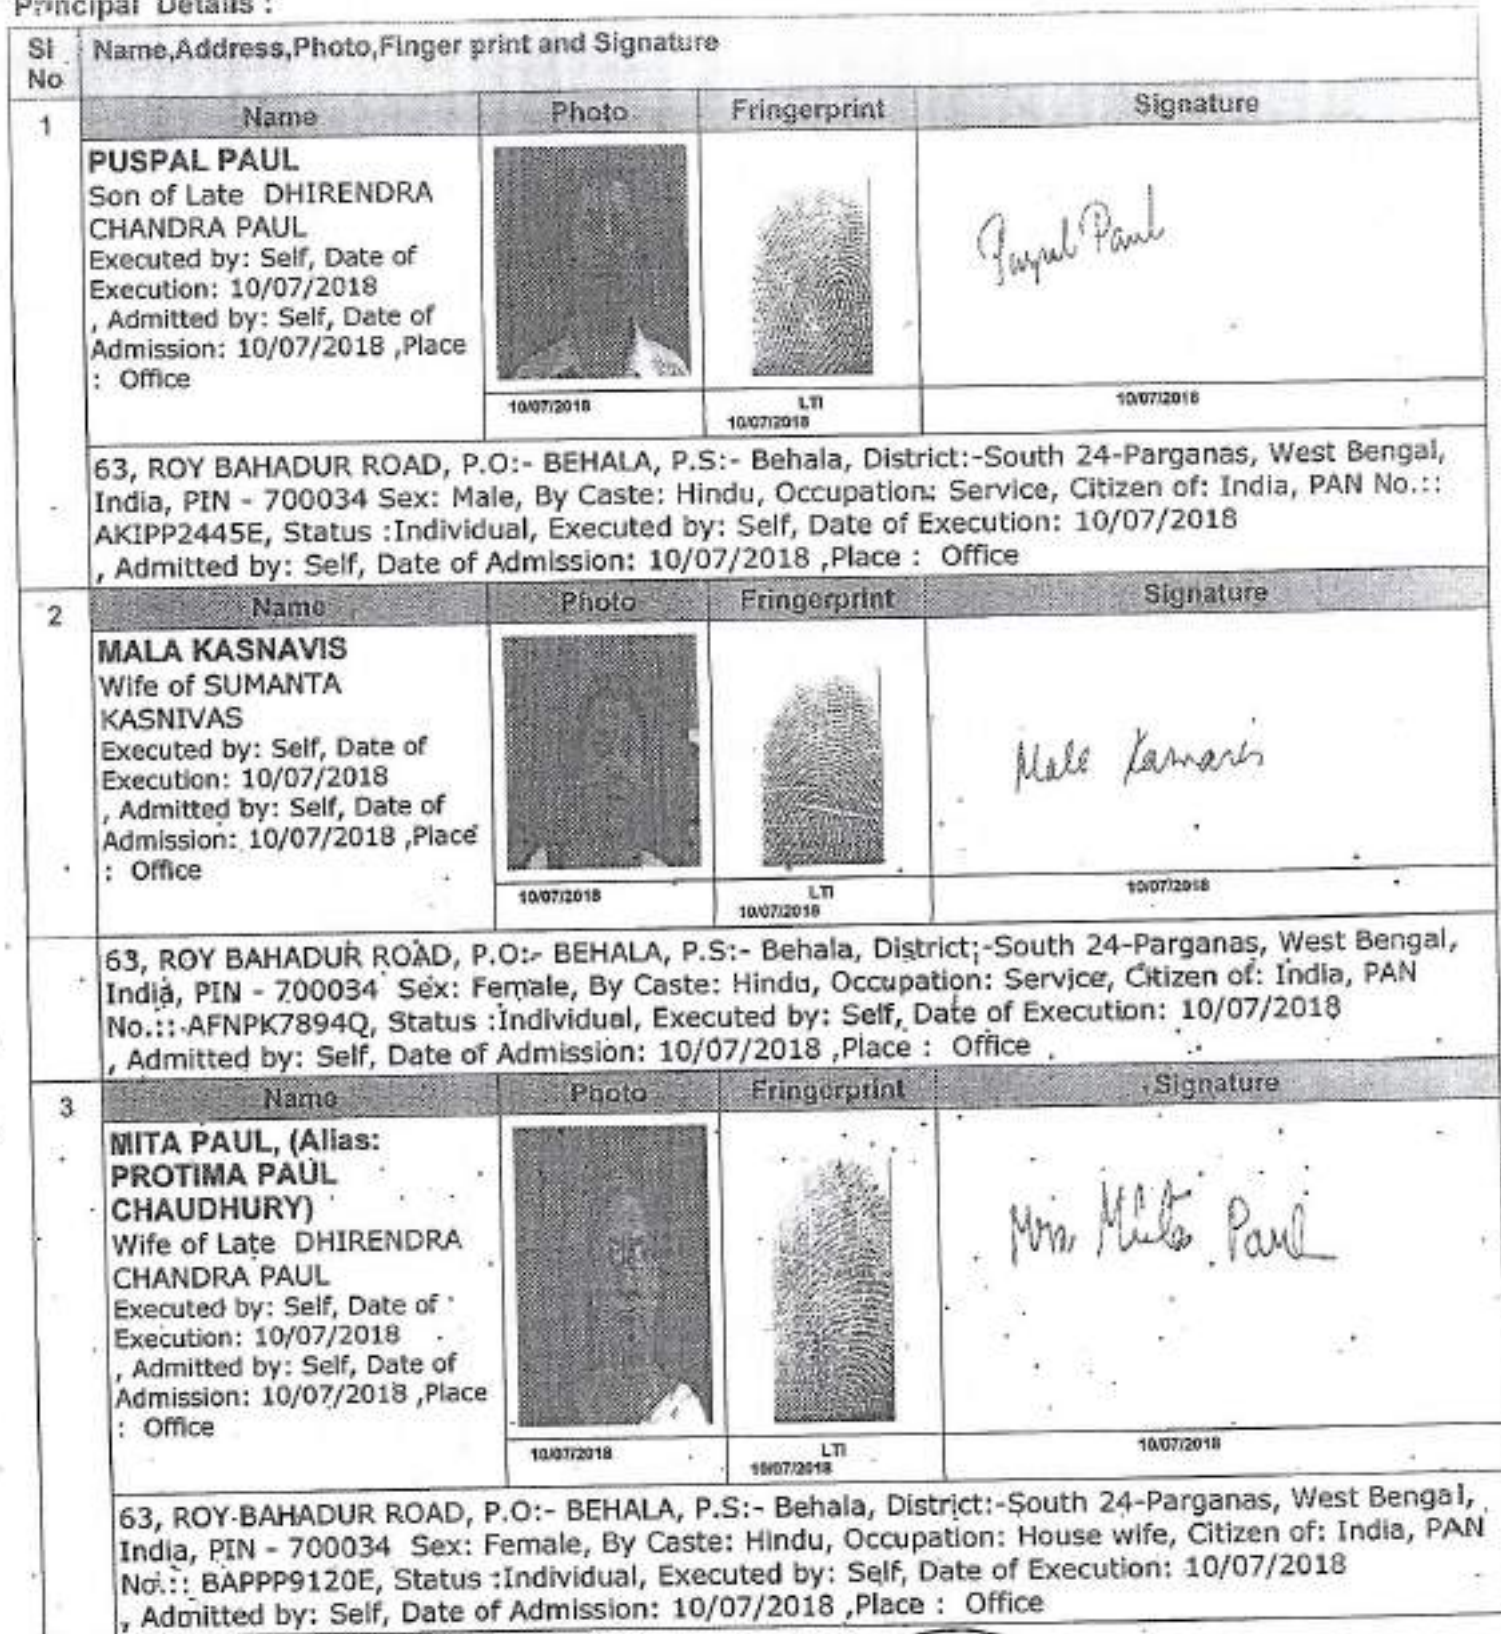 Principal Details :
Sl No
Name,Address,Photo,Finger print and Signature
1
Name Photo Fringerprint Signature
PUSPAL PAUL
Son of Late DHIRENDRA
CHANDRA PAUL
Executed by: Self, Date of
Execution: 10/07/2018
, Admitted by: Self, Date of
Admission: 10/07/2018 ,Place
: Office
Paul
10/07/2018
LTI
10/07/2018
10/07/2018
63, ROY BAHADUR ROAD, P.O:- BEHALA, P.S:- Behala, District:-South 24-Parganas, West Bengal,
India, PIN - 700034 Sex: Male, By Caste: Hindu, Occupation: Service, Citizen of: India, PAN No.::
AKIPP2445E, Status :Individual, Executed by: Self, Date of Execution: 10/07/2018
, Admitted by: Self, Date of Admission: 10/07/2018 ,Place : Office
2
Name Photo Fringerprint Signature
MALA KASNAVIS
Wife of SUMANTA
KASNIVAS
Executed by: Self, Date of
Execution: 10/07/2018
, Admitted by: Self, Date of
Admission: 10/07/2018 ,Place
: Office
10/07/2018
LTI
10/07/2018
10/07/2018
63, ROY BAHADUR ROAD, P.O:- BEHALA, P.S:- Behala, District:-South 24-Parganas, West Bengal,
India, PIN - 700034 Sex: Female, By Caste: Hindu, Occupation: Service, Citizen of: India, PAN
No.:: AFNPK7894Q, Status :Individual, Executed by: Self, Date of Execution: 10/07/2018
, Admitted by: Self, Date of Admission: 10/07/2018 ,Place : Office
3
Name Photo Fringerprint Signature
MITA PAUL, (Alias:
PROTIMA PAUL
CHAUDHURY)
Wife of Late DHIRENDRA
CHANDRA PAUL
Executed by: Self, Date of
Execution: 10/07/2018
, Admitted by: Self, Date of
Admission: 10/07/2018 ,Place
: Office
Mita Paul
10/07/2018
LTI
10/07/2018
10/07/2018
63, ROY BAHADUR ROAD, P.O:- BEHALA, P.S:- Behala, District:-South 24-Parganas, West Bengal,
India, PIN - 700034 Sex: Female, By Caste: Hindu, Occupation: House wife, Citizen of: India, PAN
No.:: BAPPP9120E, Status :Individual, Executed by: Self, Date of Execution: 10/07/2018
, Admitted by: Self, Date of Admission: 10/07/2018 ,Place : Office